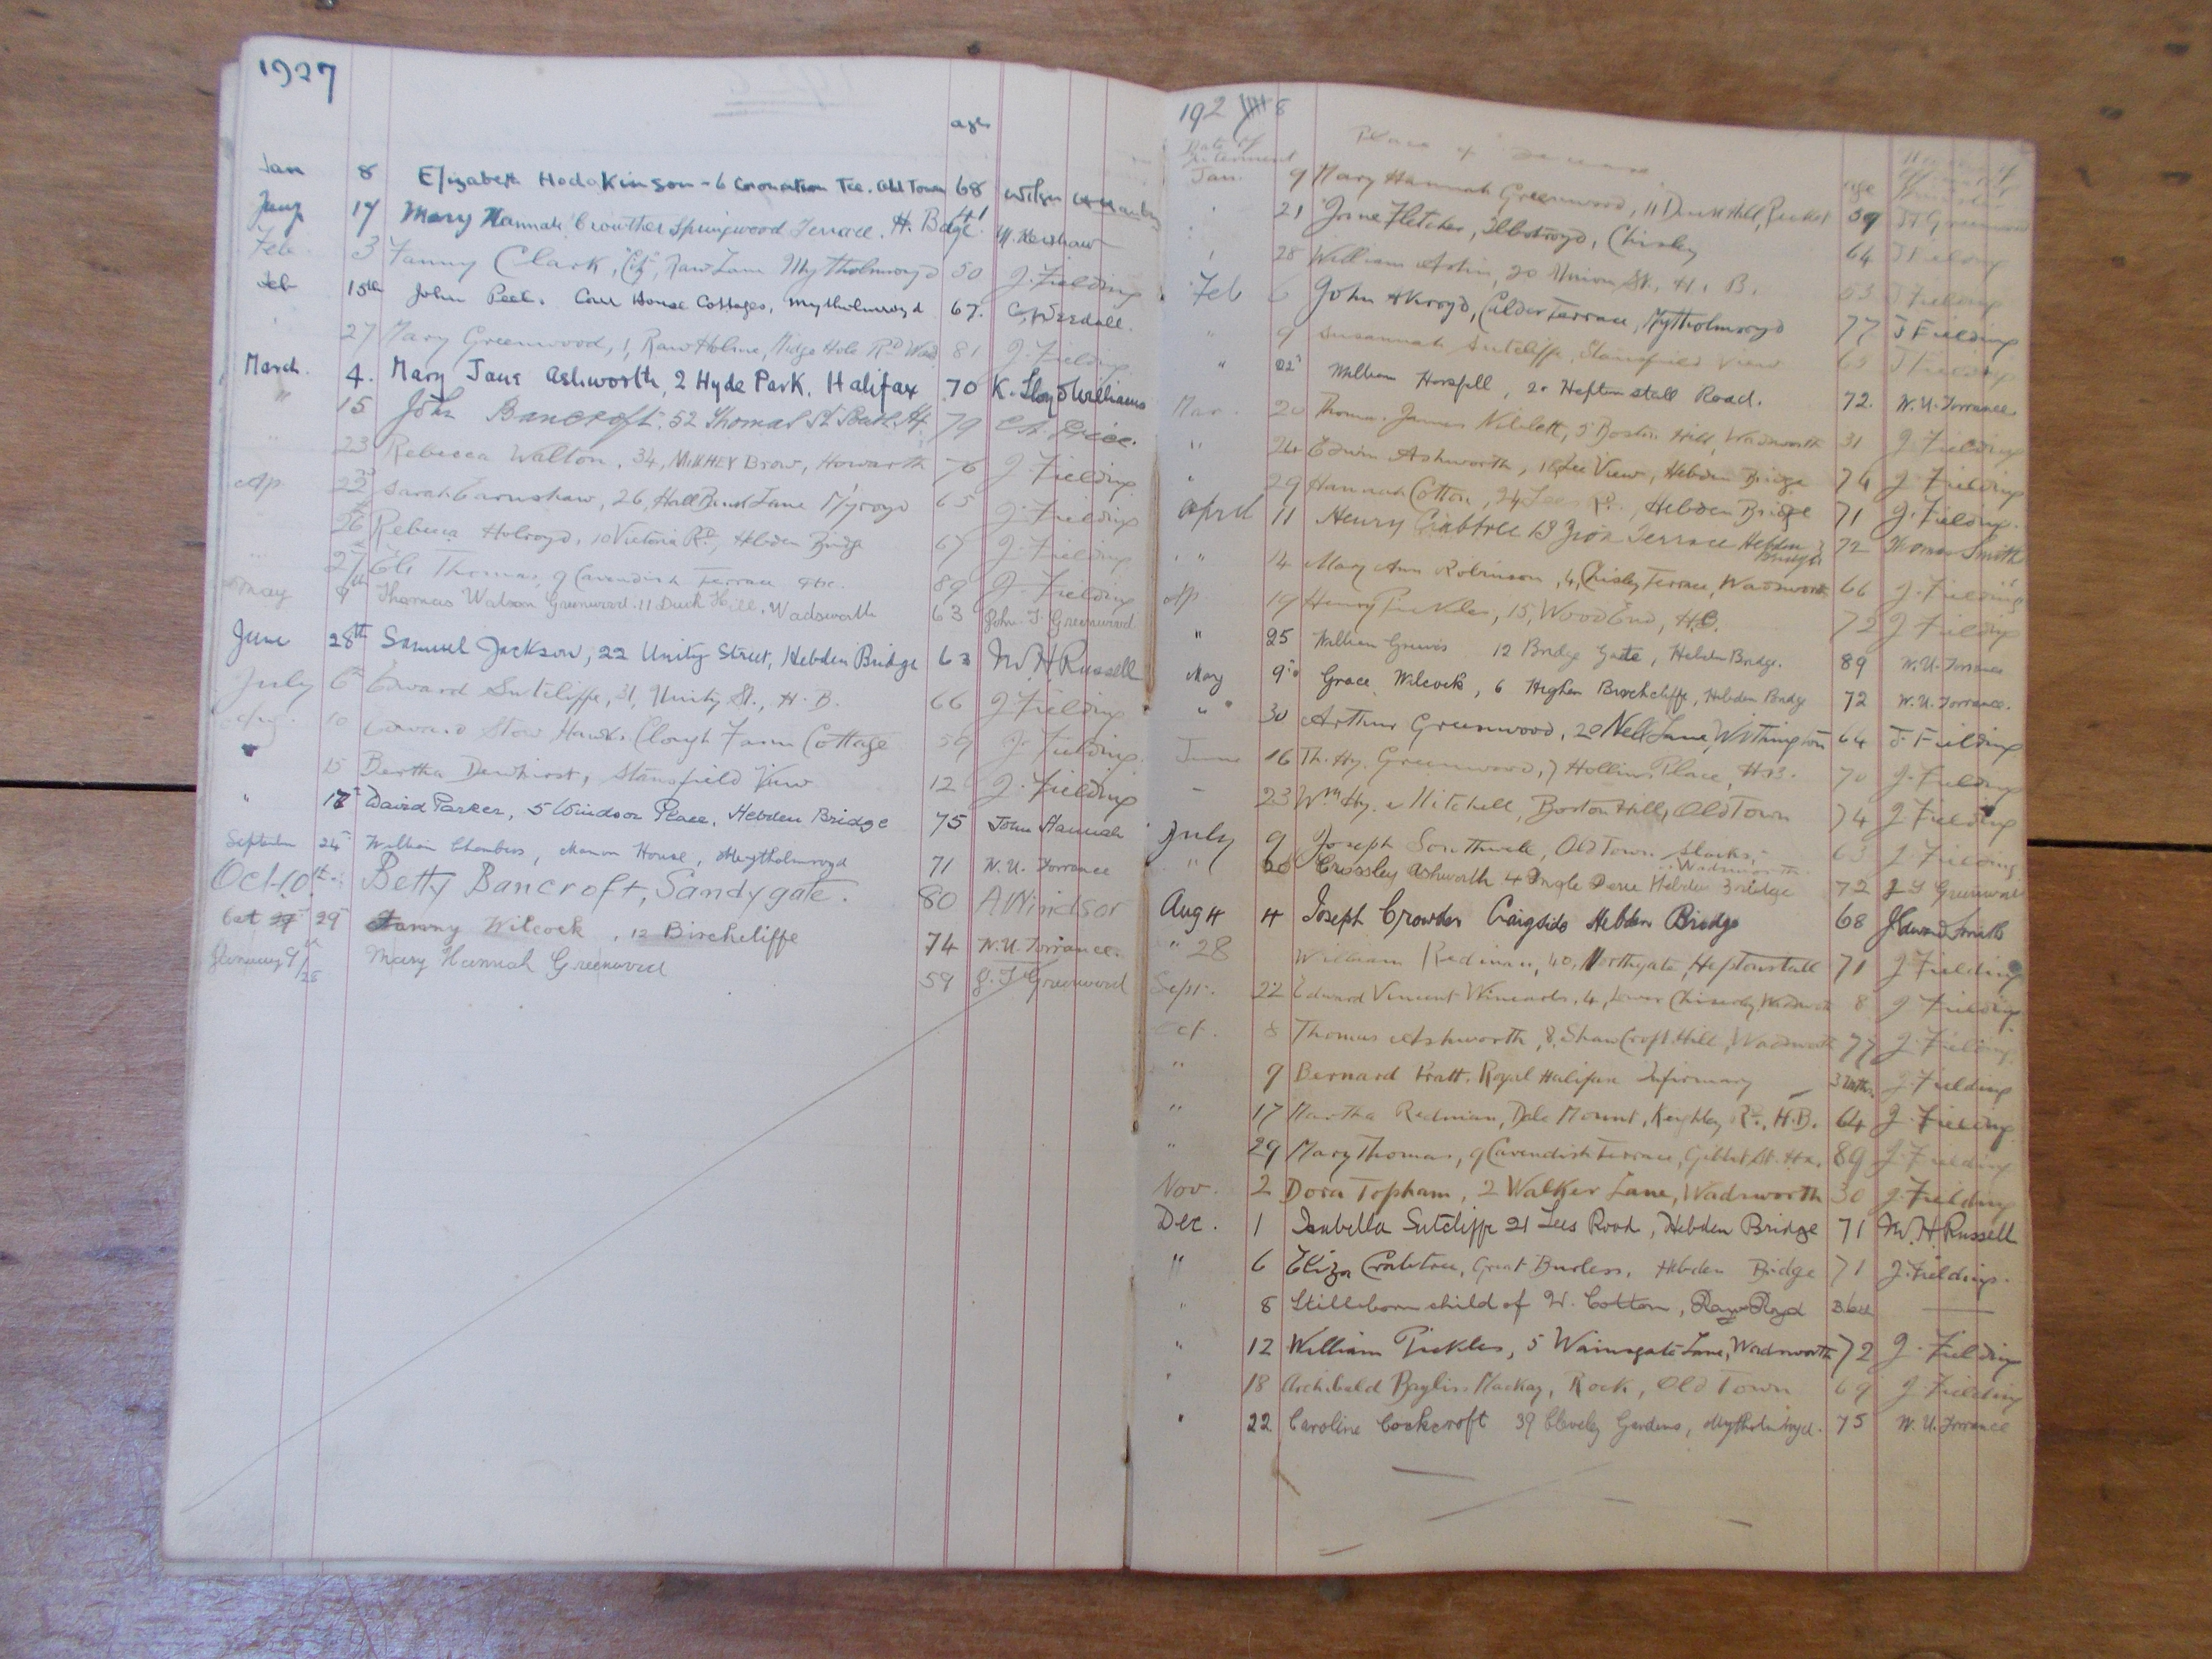 1927
age
Jan 8 Elizabeth Hodgkinson - 6 Coronation Tce. Old Town 68 Wilson
17 Mary Hannah Crowther Springwood Terrace. H. Bdge 61 M. Kershaw
Feb 3 Fanny Clark, "City", Raw Lane Mytholmroyd 50 J. Fielding
Feb 15th John Peel. Cour House Cottages, Mytholmroyd 67.
27 Mary Greenwood, 1, Raw Holme, Midge Hole Rd Wad 81 J. Fielding
March. 4. Mary Jane Ashworth, 2 Hyde Park, Halifax 70 K. Lloyd Williams
" 15 John Bancroft. 52 Thomas St South Hx 79 Price.
" 23 Rebecca Walton, 34, Brow, Howarth 76 J. Fielding
Ap 22 Sarah Earnshaw, 26, Hall Bank Lane M'royd 65 J. Fielding
26 Rebecca Holroyd, 10 Victoria Rd, Hebden Bridge 67 J. Fielding
27 Eli Thomas, 9 Cavendish Terrace 89 J. Fielding
May 9th Thomas Watson Greenwood. 11 Duck Hill, Wadsworth 63 John. T. Greenwood
June 28th Samuel Jackson, 22 Unity Street, Hebden Bridge 63 M. H Russell
July 6th Edward Sutcliffe, 31, Unity St., H. B. 66 J Fielding
Aug. 10 Edward Stow Hawks Clough Farm Cottage 59 J. Fielding
" 15 Bertha Dewhirst, Stansfield View 12 J. Fielding
" 17 David Parker, 5 Windsor Place, Hebden Bridge 75 John Hannah
September 24 William Chambers, Manor House, Mytholmroyd 71 W. U. Torrance
Oct 10th Betty Bancroft, Sandygate. 80 A Windsor
Oct 29 Fanny Wilcock, 12 Birchcliffe 74 W. U. Torrance.
January 9/28 Mary Hannah Greenwood 59 J. T Greenwood
192 8
Date of Interment Place of age
Jan. 9 Mary Hannah Greenwood, 11 Duck Hill, 59 JT Greenwood
" 21 Jane Fletcher, Chisley 64 J Fielding
" 28 William Astin, 20 Union St. H. B. 63 J Fielding
Feb 6 John Akroyd, Calder Terrace, Mytholmroyd 77 J Fielding
" 9 Susannah Sutcliffe, Stansfield View 65 J Fielding
" 22 William Horsfall, 20 Heptonstall Road. 72. W. U. Torrance.
Mar. 20 Thomas James Niblett, 5 Boston Hill, Wadsworth 31 J. Fielding
" 24 Edwin Ashworth, Lee View, Hebden Bridge 74 J. Fielding
" 29 Hannah Cotton, 24 Lees Rd., Hebden Bridge 71 J. Fielding.
April 11 Henry Crabtree 13 Zion Terrace Hebden Bridge 72 Thomas Smith
" " 14 Mary Ann Robinson, 4, Chisley Terrace, Wadsworth 66 J. Fielding
Ap 19 Henry Pickles, 15, Wood End, H.B. 72 J Fielding
" 25 William Greaves 12 Bridge Gate, Hebden Bridge. 89 W. U. Torrance
May 9th Grace Wilcock, 6 Higher Birchcliffe, Hebden Bridge 72 W. U. Torrance.
" 30 Arthur Greenwood, 20 Nell Lane, Withington 64 J. Fielding
June 16 Th. Hy. Greenwood, 7 Hollins Place, H.B. 70 J. Fielding
" 23 Wm Hy. Mitchell, Boston Hill, Old Town 74 J Fielding
July 9 Joseph Southwell, Old Town Slacks, Wadsworth 63 J. Fielding
" Crossley Ashworth 4 Ingle Dene Hebden Bridge 72 J T Greenwood
Aug 4 4 Joseph Crowther Craigside Hebden Bridge 68 J Edward Smith
" 28 William Redman, 40, Northgate, Heptonstall 71 J. Fielding
Sept. 22 Edward Vincent Wineards, 4, Lower Chiserley, Wadsworth 8 J Fielding
Oct. 8 Thomas Ashworth, 8, Shaw Croft Hill, Wadsworth 77 J. Fielding.
" 9 Bernard Pratt. Royal Halifax Infirmary J. Fielding
" 17 Martha Redman, Dale Mount, Keighley Rd., H.B. 64 J. Fielding
" 29 Mary Thomas, 9 Cavendish Terrace, Gibbet St. Hx. 89 J. Fielding
Nov. 2 Dora Topham, 2 Walker Lane, Wadsworth 30 J. Fielding
Dec. 1 Isabella Sutcliffe 21 Lees Road, Hebden Bridge 71 M. H. Russell
" 6 Eliza Crabtree, Great Burlees, Hebden Bridge 71 J. Fielding.
" 8 Stillborn child of W. Cotton, Raw Royd
" 12 William Pickles, 5 Wainsgate Lane, Wadsworth 72 J. Fielding
" 18 Archibald Bayliss Mackay, Rock, Old Town 69 J. Fielding
" 22 Caroline Cockcroft 39 Cleveley Gardens, Mytholmroyd. 75 W. U. Torrance